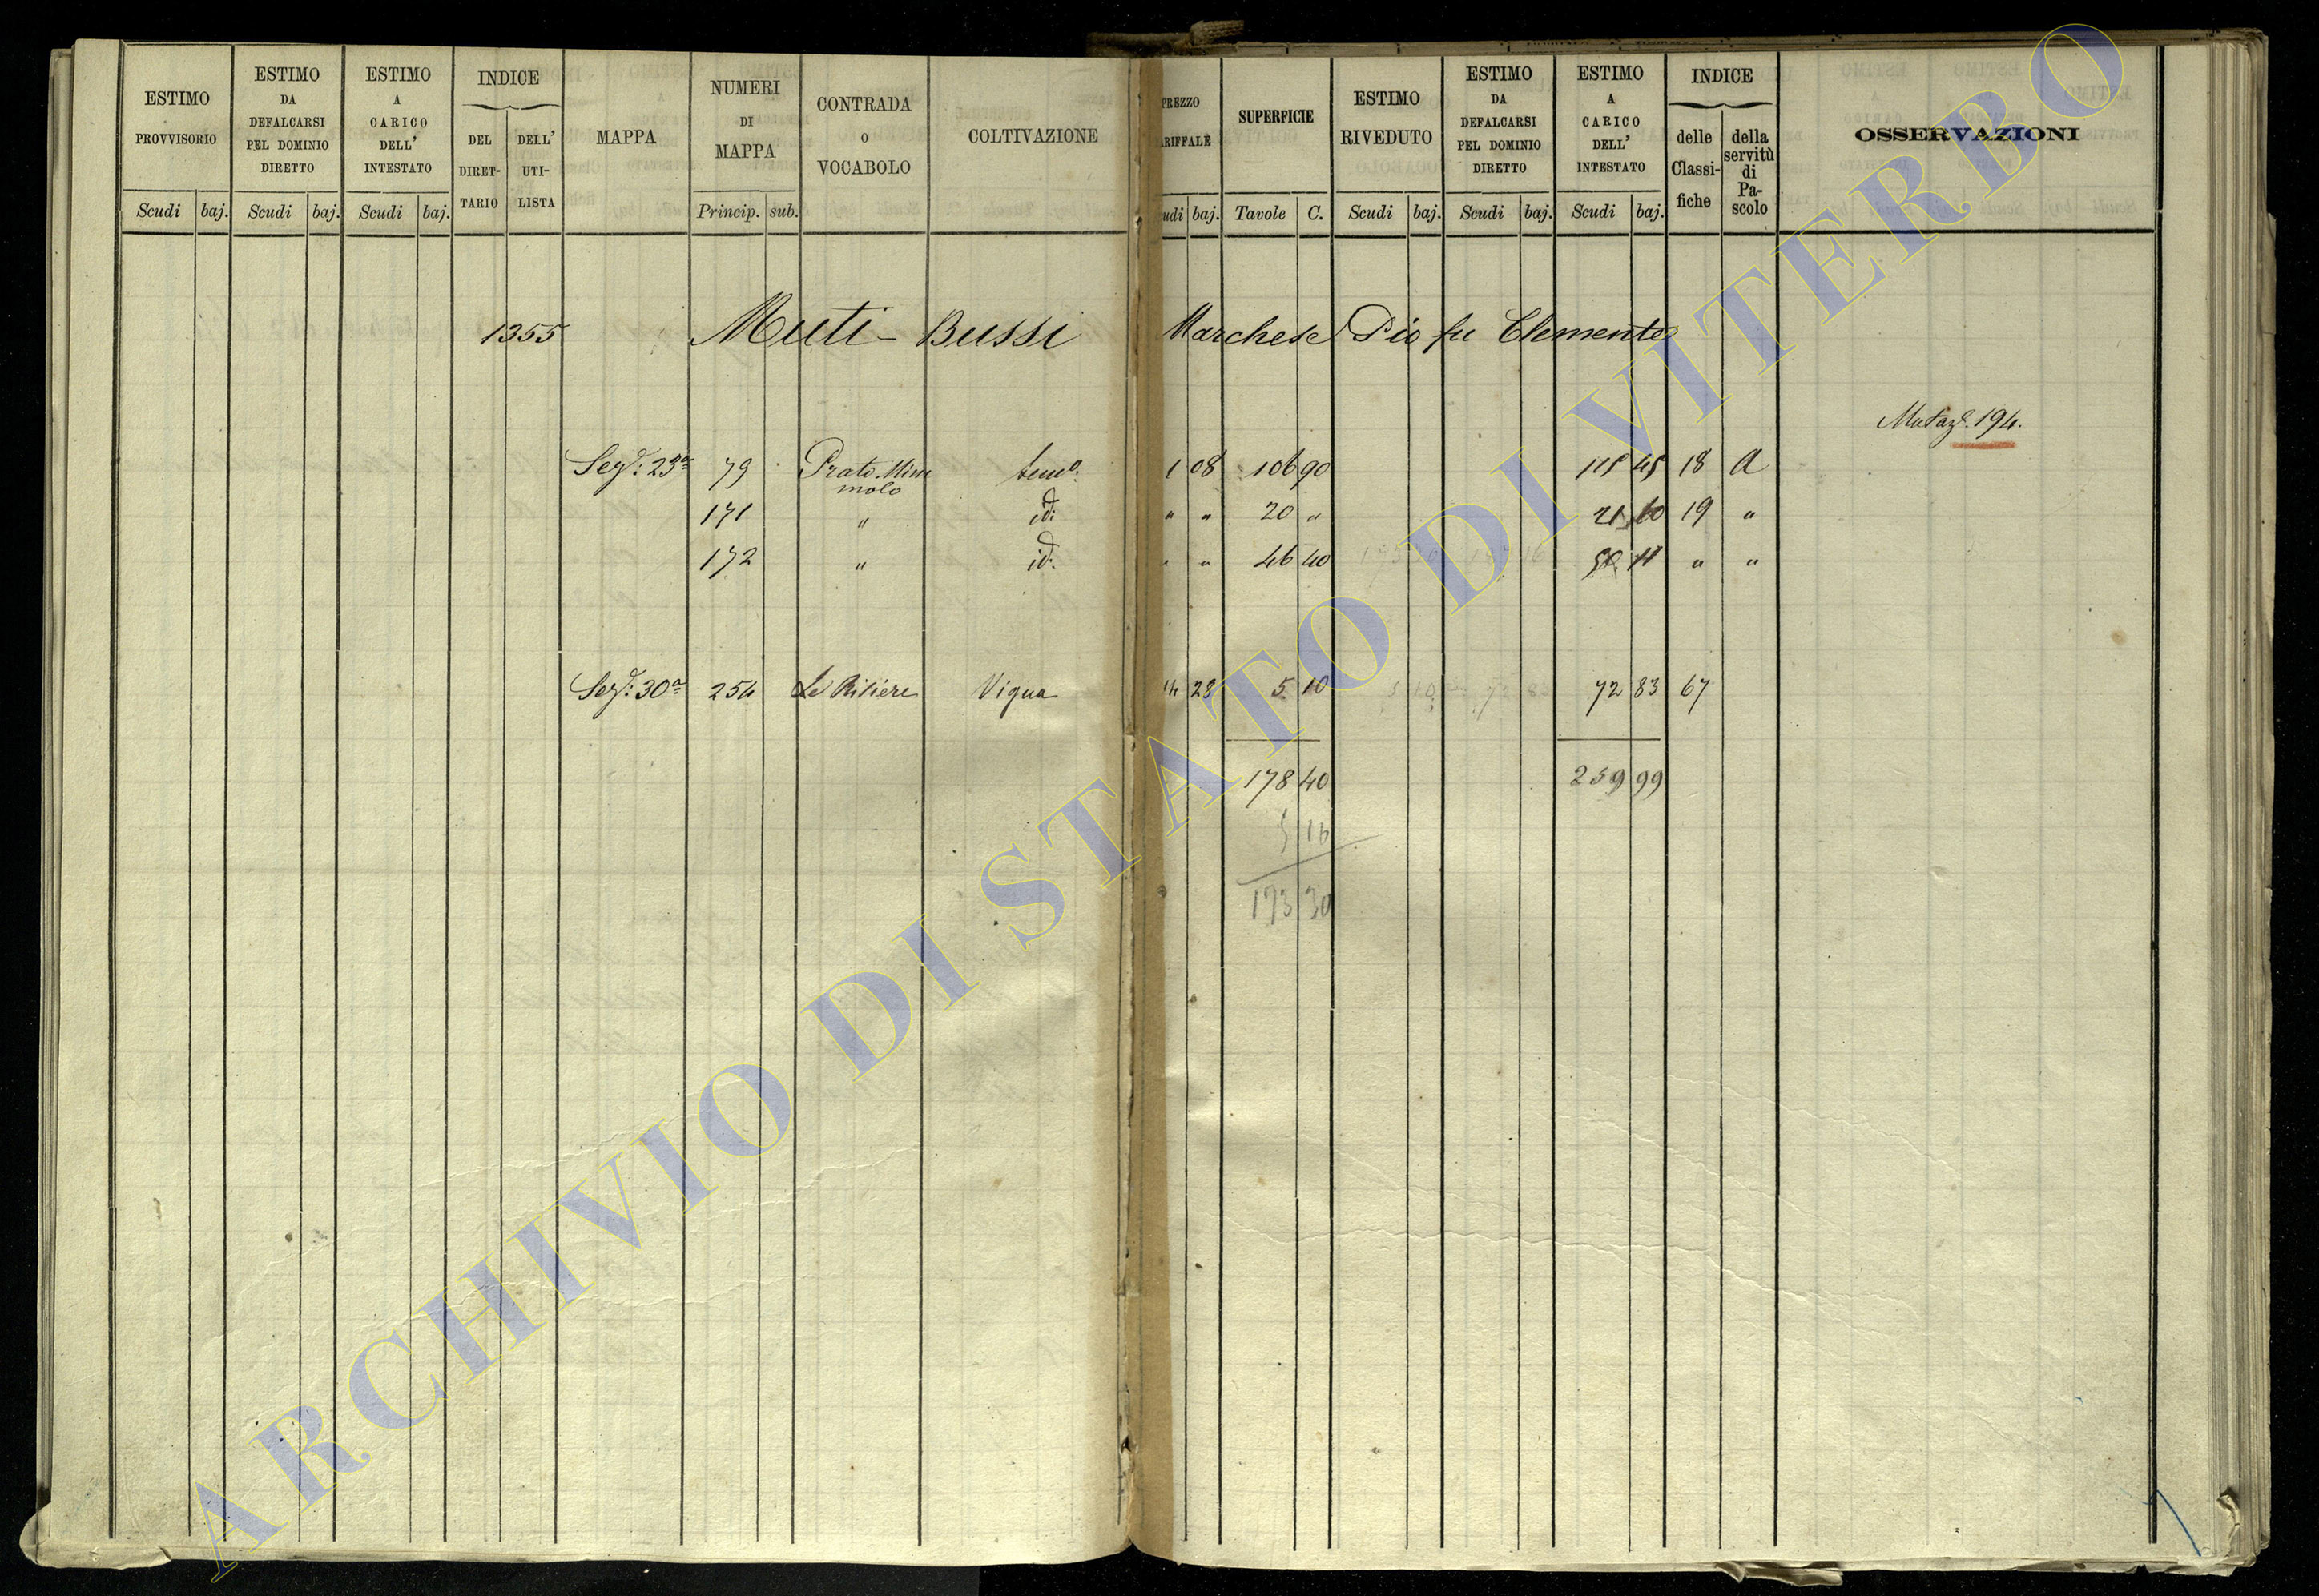 ESTIMO PROVVISORIO
Scudi baj.
ESTIMO DA DEFALCARSI PEL DOMINIO DIRETTO
Scudi baj.
ESTIMO A CARICO DELL' INTESTATO
Scudi baj.
INDICE
DEL DIRET-TARIO
DELL' UTI-LISTA
MAPPA
NUMERI DI MAPPA
Princip. sub.
CONTRADA O VOCABOLO
COLTIVAZIONE
PREZZO
ARIFFALE
udi baj.
SUPERFICIE
Tavole C.
ESTIMO RIVEDUTO
Scudi baj.
ESTIMO DA DEFALCARSI PEL DOMINIO DIRETTO
Scudi baj.
ESTIMO A CARICO DELL' INTESTATO
Scudi baj.
INDICE
delle Classi-fiche
della servitù di Pa-scolo
OSSERVAZIONI
1355 Muti-Bussi Marchese Pio fu Clemente
194.
23ª 79 Prato Mim 1 08 106 90 115 45 18 A
molo
171 " id: " " 20 " 21 60 19 "
172 " id. " " 46 40 50 11 " "
30ª 254 Le Risiere Vigna 14 28 5 10 72 83 67
178 40 259 99
5 10
173 30
ARCHIVIO DI STATO DI VITERBO